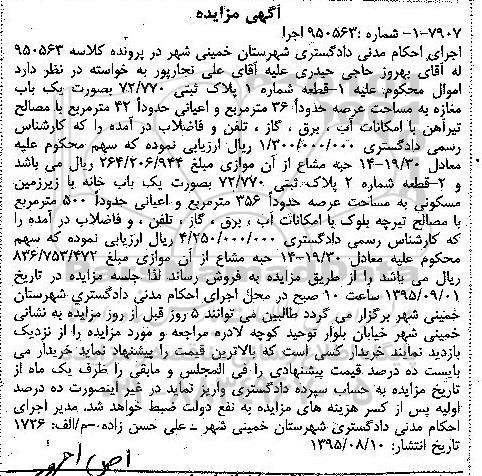 آگهی مزایده
۷۹۰۷-۱- شماره :۹۵۰۵۶۳ اجرا
اجرای احکام مدنی دادگستری شهرستان خمینی شهر در پرونده کلاسه ۹۵۰۵۶۳
له آقای بهروز حاجی حیدری علیه آقای علی نجارپور به خواسته در نظر دارد
اموال محکوم علیه ۱-قطعه شماره ۱ پلاک ثبتی ۷۲/۷۷۰ بصورت یک باب
مغازه به مساحت عرصه حدوداً ۳۶ مترمربع و اعیانی حدوداً ۴۲ مترمربع با مصالح
تیرآهن با امکانات آب ، برق ، گاز ، تلفن و فاضلاب در آمده را که کارشناس
رسمی دادگستری ۱/۳۰۰/۰۰۰/۰۰۰ ریال ارزیابی نموده که سهم محکوم علیه
معادل ۱۹/۳۰-۱۴ حبه مشاع از آن موازی مبلغ ۲۶۴/۲۰۶/۹۴۴ ریال می باشد
و ۲-قطعه شماره ۲ پلاک ثبتی ۷۲/۷۷۰ بصورت یک باب خانه با زیرزمین
مسکونی به مساحت عرصه حدوداً ۳۵۶ مترمربع و اعیانی حدوداً ۵۰۰ مترمربع
با مصالح تیرچه بلوک با امکانات آب ، برق ، گاز ، تلفن ، و فاضلاب در آمده را
که کارشناس رسمی دادگستری ۴/۲۵۰/۰۰۰/۰۰۰ ریال ارزیابی نموده که سهم
محکوم علیه معادل ۱۹/۳۰-۱۴ حبه مشاع از آن موازی مبلغ ۸۳۶/۷۵۳/۴۷۲
ریال می باشد را از طریق مزایده به فروش رساند لذا جلسه مزایده در تاریخ
۱۳۹۵/۰۹/۰۱ ساعت ۱۰ صبح در محل اجرای احکام مدنی دادگستری شهرستان
خمینی شهر برگزار می گردد طالبین می توانند ۵ روز قبل از روز مزایده به نشانی
خمینی شهر خیابان بلوار توحید کوچه لادره مراجعه و مورد مزایده را از نزدیک
بازدید نمایند خریدار کسی است که بالاترین قیمت را پیشنهاد نماید خریدار می
بایست ده درصد قیمت پیشنهادی را فی المجلس و مابقی را ظرف یک ماه از
تاریخ مزایده به حساب سپرده دادگستری واریز نماید در غیر اینصورت ده درصد
اولیه پس از کسر هزینه های مزایده به نفع دولت ضبط خواهد شد. مدیر اجرای
احکام مدنی دادگستری شهرستان خمینی شهر - علی حسن زاده-م/الف: ۱۷۲۶
تاریخ انتشار: ۱۳۹۵/۰۸/۱۰